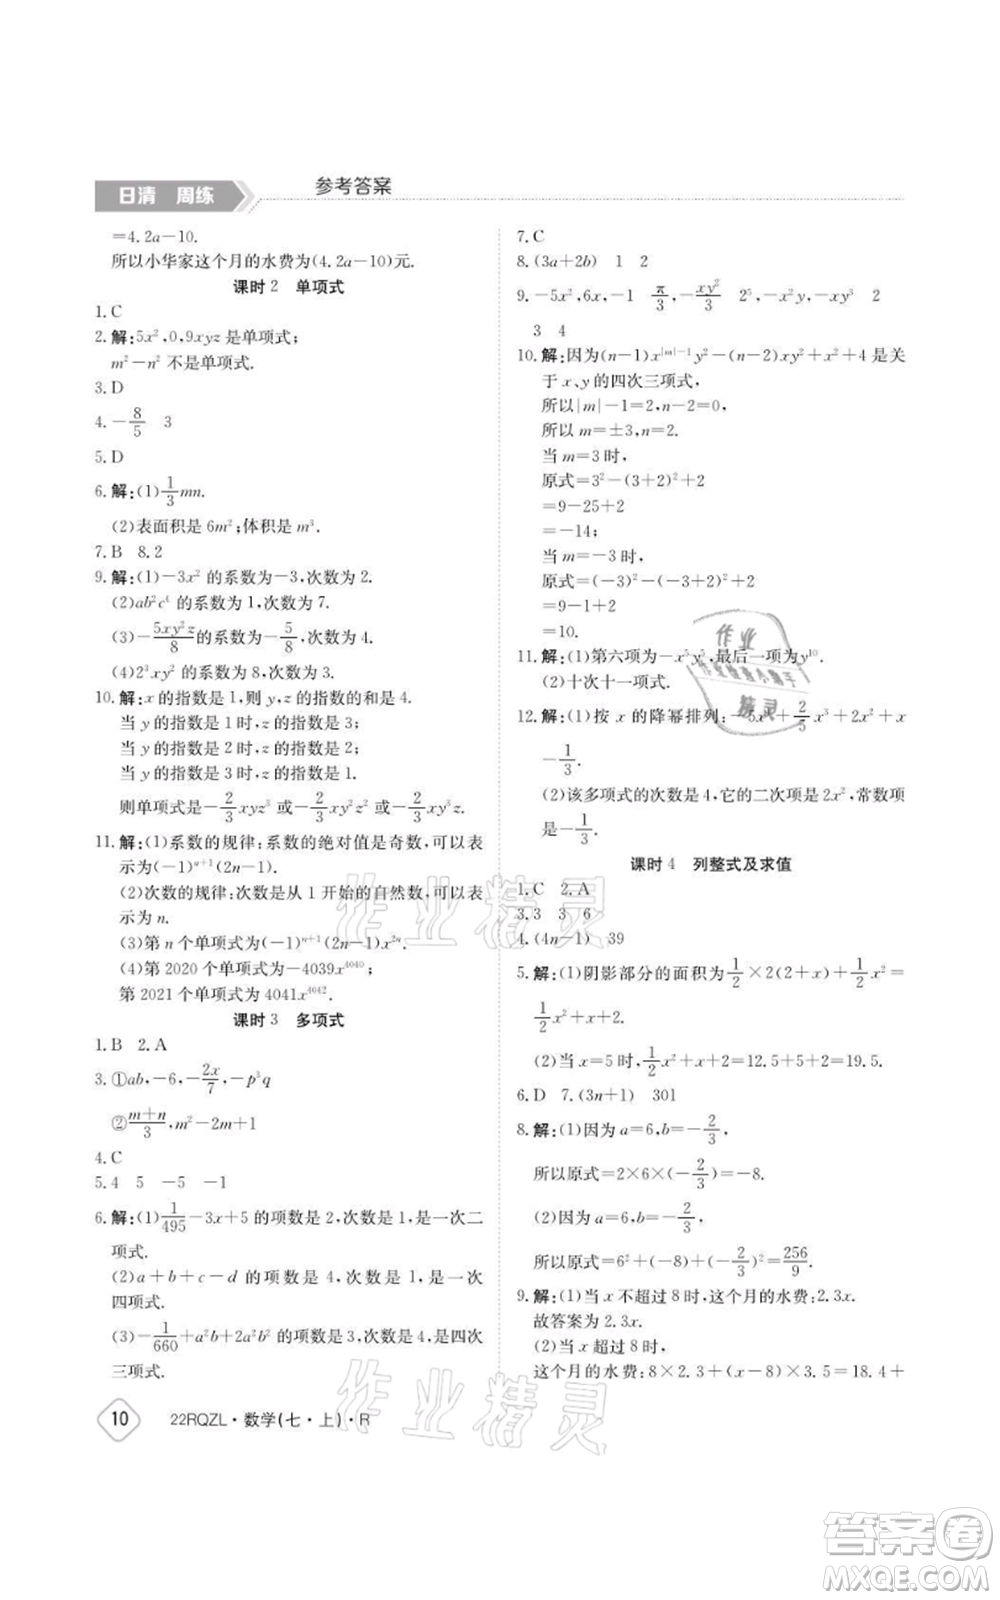 日清 周练
参考答案
=4.2a-10.
所以小华家这个月的水费为(4.2a-10)元.
课时2 单项式
1.C
2.解:5x²,0,9xyz是单项式;
m²-n²不是单项式.
3.D
4.-8/5 3
5.D
6.解:(1)1/3mn.
(2)表面积是6m²;体积是m³.
7.B 8.2
9.解:(1)-3x²的系数为-3,次数为2.
(2)ab²c⁴的系数为1,次数为7.
(3)-5xy²z/8的系数为-5/8,次数为4.
(4)2³xy²的系数为8,次数为3.
10.解:x的指数是1,则y,z的指数的和是4.
当y的指数是1时,z的指数是3;
当y的指数是2时,z的指数是2;
当y的指数是3时,z的指数是1.
则单项式是-2/3xyz³或-2/3xy²z²或-2/3xy³z.
11.解:(1)系数的规律:系数的绝对值是奇数,可表
示为(-1)ⁿ⁺¹(2n-1).
(2)次数的规律:次数是从1开始的自然数,可以
表示为n.
(3)第n个单项式为(-1)ⁿ⁺¹(2n-1)x²ⁿ.
(4)第2020个单项式为-4039x⁴⁰⁴⁰;
第2021个单项式为4041x⁴⁰⁴².
课时3 多项式
1.B 2.A
3.①ab,-6,-2x/7,-p³q
②(m+n)/3,m²-2m+1
4.C
5.4 5 -5 -1
6.解:(1)1/495-3x+5的项数是2,次数是1,是一次二
项式.
(2)a+b+c-d的项数是4,次数是1,是一次
四项式.
(3)-1/660+a²b+2a²b²的项数是3,次数是4,是四次
三项式.
7.C
8.(3a+2b) 1 2
9.-5x²,6x,-1 π/3,-xy²/3 2⁵,-x²y,-x³ 2
3 4
10.解:因为(n-1)x^|m|-1y²-(n-2)xy²+x+4是关
于x、y的四次三项式,
所以|m|-1=2,n-2=0,
所以m=±3,n=2.
当m=3时,
原式=3²-(3+2)²+2
=9-25+2
=-14;
当m=-3时,
原式=(-3)²-(-3+2)²+2
=9-1+2
=10.
11.解:(1)第六项为-x⁵y⁵,最后一项为y¹⁰.
(2)十次十一项式.
12.解:(1)按x的降幂排列:-5x⁴+2/5x³+2x²+x
-1/3.
(2)该多项式的次数是4,它的二次项是2x²,常数项
是-1/3.
课时4 列整式及求值
1.C 2.A
3.3 3 6
4.(4n-1) 39
5.解:(1)阴影部分的面积为1/2×2(2+x)+1/2x²=
1/2x²+x+2.
(2)当x=5时,1/2x²+x+2=12.5+5+2=19.5.
6.D 7.(3n+1) 301
8.解:(1)因为a=6,b=-2/3,
所以原式=2×6×(-2/3)=-8.
(2)因为a=6,b=-2/3,
所以原式=6²+(-8)+(-2/3)²=256/9.
9.解:(1)当x不超过8时,这个月的水费:2.3x.
故答案为2.3x.
(2)当x超过8时,
这个月的水费:8×2.3+(x-8)×3.5=18.4+
10 22RQZL·数学(七·上)·R
作业精灵
作业精灵
作业
精灵
答案卷
MXQE.COM